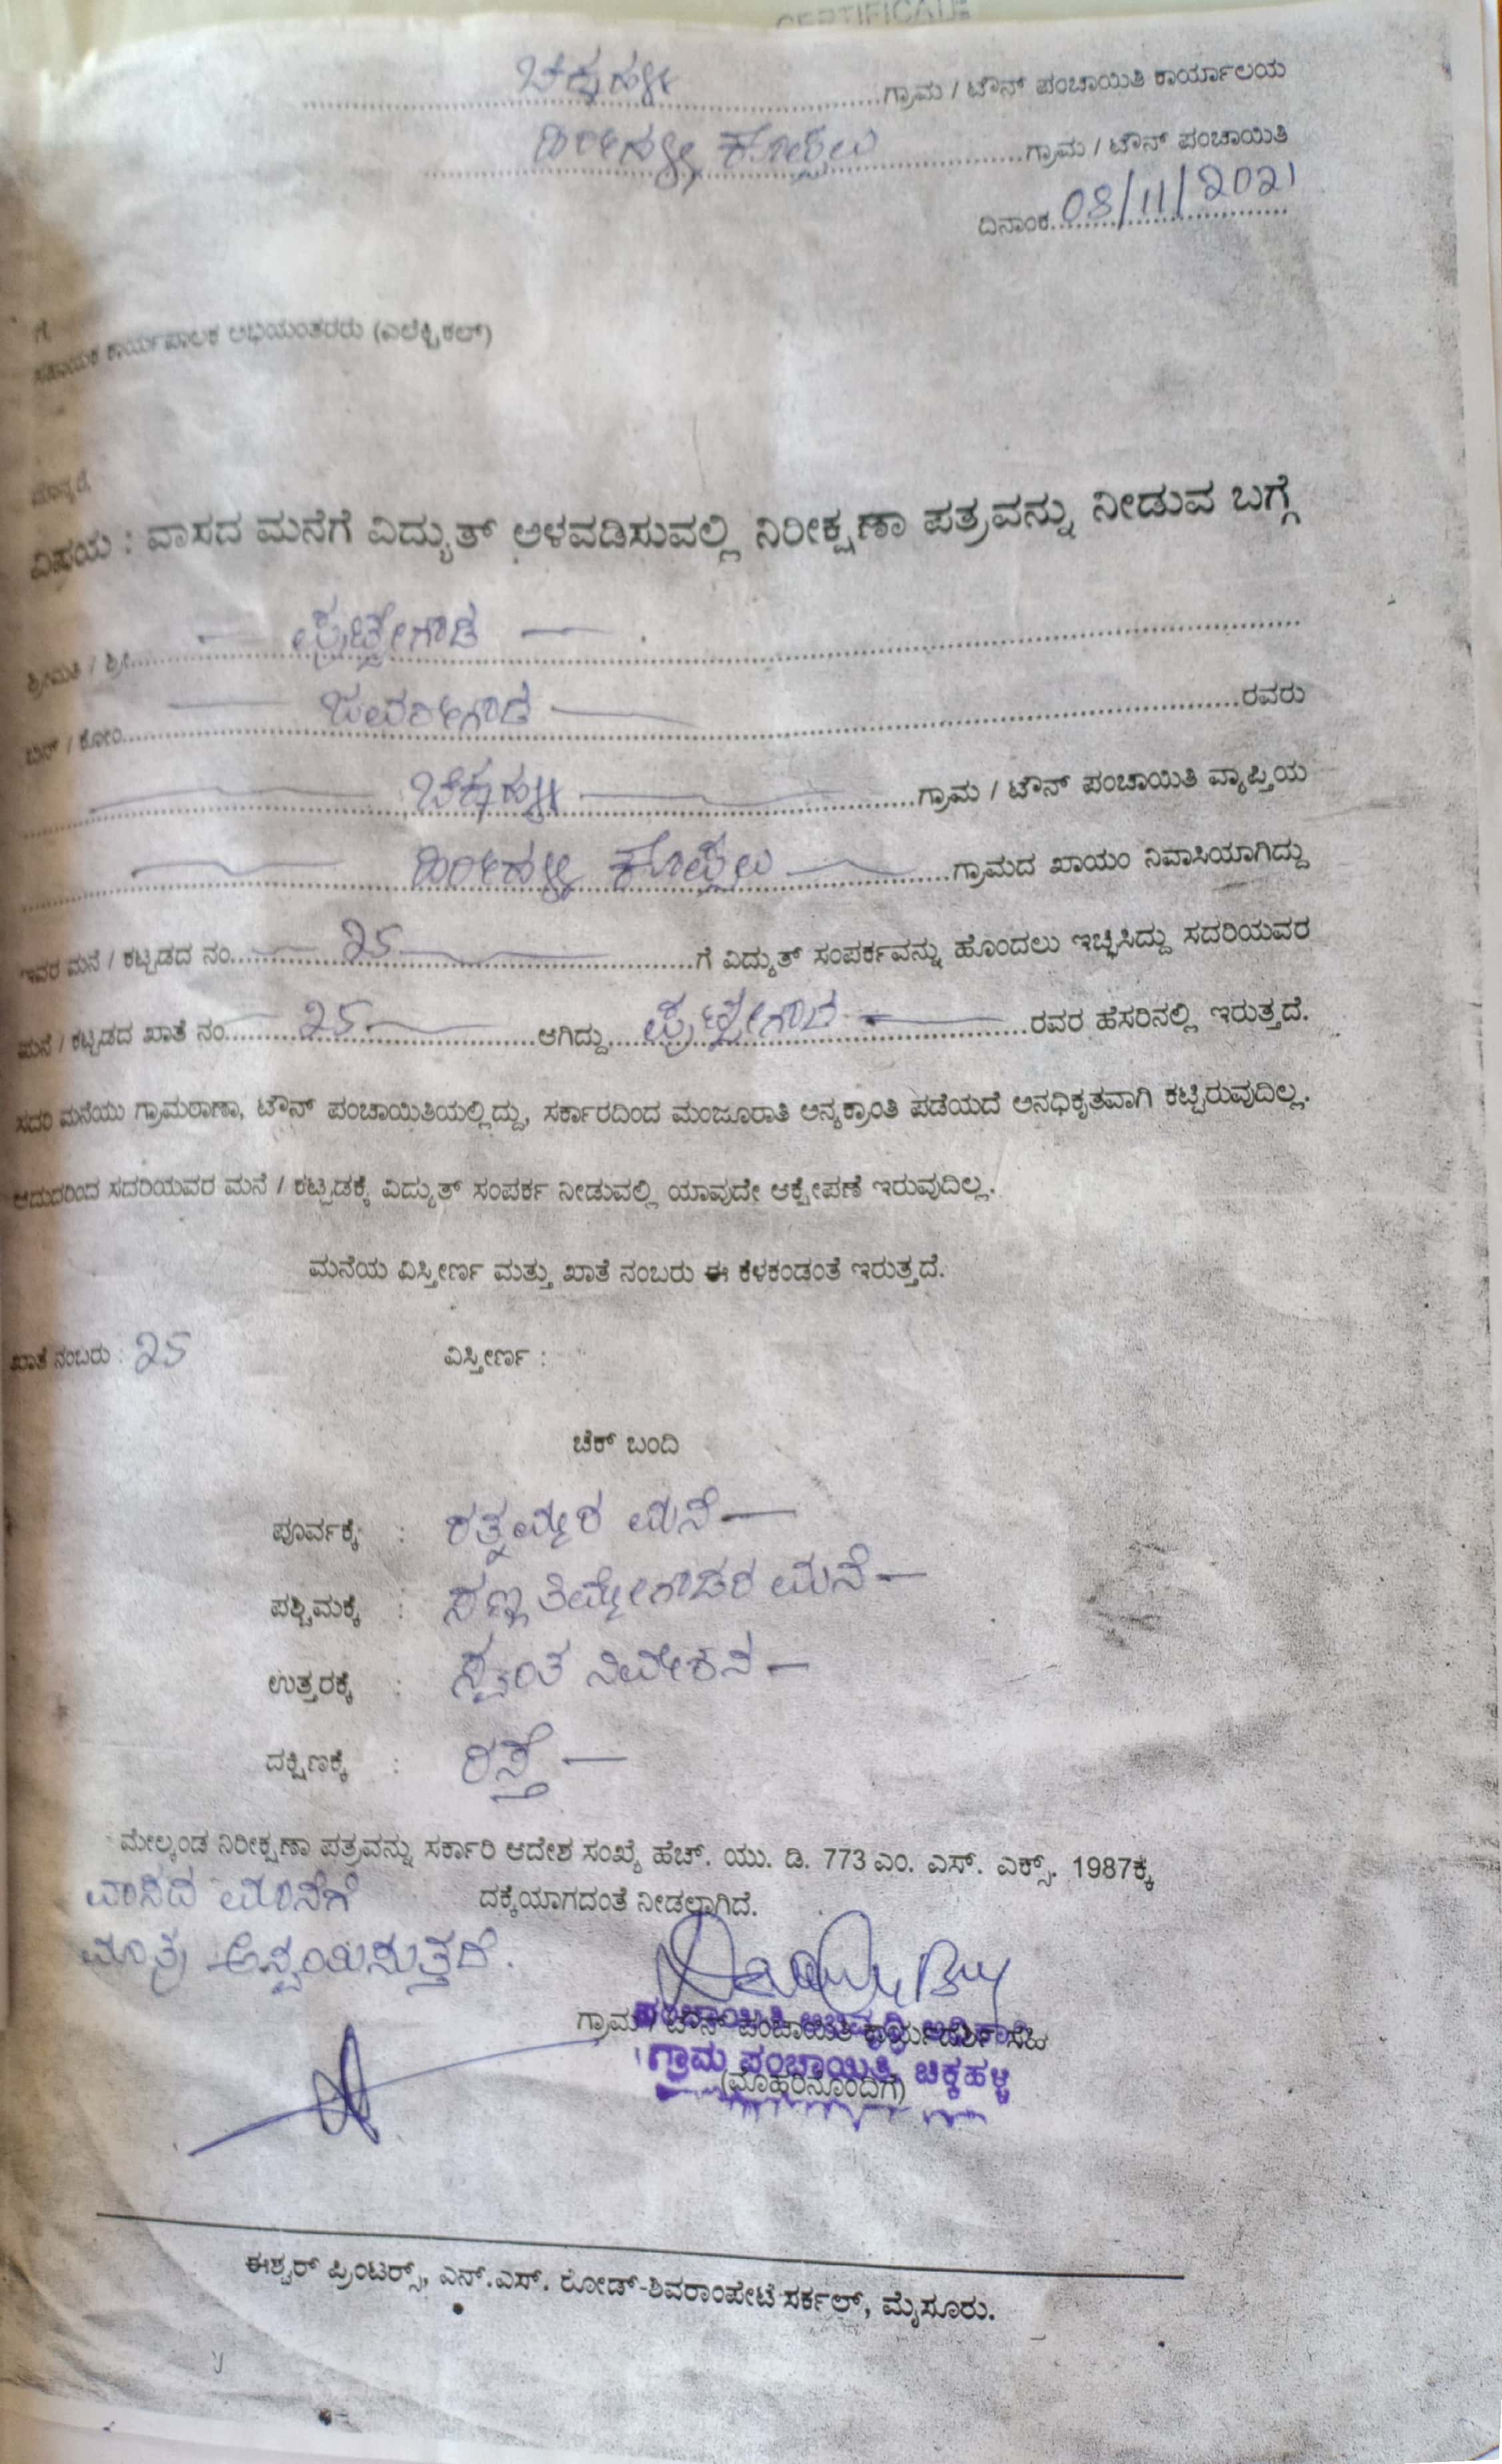 CERTIFICATE
ಚಿಕ್ಕಹಳ್ಳಿ ಗ್ರಾಮ / ಟೌನ್ ಪಂಚಾಯಿತಿ ಕಾರ್ಯಾಲಯ
ಕೊಪ್ಪಲು ಗ್ರಾಮ / ಟೌನ್ ಪಂಚಾಯಿತಿ
ದಿನಾಂಕ 08/11/2021
ಗೆ
ಸಹಾಯಕ ಕಾರ್ಯಪಾಲಕ ಅಭಿಯಂತರರು (ಎಲೆಕ್ಟ್ರಿಕಲ್)
ಮಾನ್ಯರೆ,
ವಿಷಯ : ವಾಸದ ಮನೆಗೆ ವಿದ್ಯುತ್ ಅಳವಡಿಸುವಲ್ಲಿ ನಿರೀಕ್ಷಣಾ ಪತ್ರವನ್ನು ನೀಡುವ ಬಗ್ಗೆ
ಶ್ರೀಮತಿ / ಶ್ರೀ ಪುಟ್ಟೇಗೌಡ
ಬಿನ್ / ಕೋಂ ಜವರೇಗೌಡ ರವರು
ಚಿಕ್ಕಹಳ್ಳಿ ಗ್ರಾಮ / ಟೌನ್ ಪಂಚಾಯಿತಿ ವ್ಯಾಪ್ತಿಯ
ಕೊಪ್ಪಲು ಗ್ರಾಮದ ಖಾಯಂ ನಿವಾಸಿಯಾಗಿದ್ದು
ಇವರ ಮನೆ / ಕಟ್ಟಡದ ನಂ 25 ಗೆ ವಿದ್ಯುತ್ ಸಂಪರ್ಕವನ್ನು ಹೊಂದಲು ಇಚ್ಛಿಸಿದ್ದು ಸದರಿಯವರ
ಮನೆ / ಕಟ್ಟಡದ ಖಾತೆ ನಂ 25 ಆಗಿದ್ದು ಪುಟ್ಟೇಗೌಡ ರವರ ಹೆಸರಿನಲ್ಲಿ ಇರುತ್ತದೆ.
ಸದರಿ ಮನೆಯು ಗ್ರಾಮಠಾಣಾ, ಟೌನ್ ಪಂಚಾಯಿತಿಯಲ್ಲಿದ್ದು, ಸರ್ಕಾರದಿಂದ ಮಂಜೂರಾತಿ ಅನ್ಯಕ್ರಾಂತಿ ಪಡೆಯದೆ ಅನಧಿಕೃತವಾಗಿ ಕಟ್ಟಿರುವುದಿಲ್ಲ.
ಆದುದರಿಂದ ಸದರಿಯವರ ಮನೆ / ಕಟ್ಟಡಕ್ಕೆ ವಿದ್ಯುತ್ ಸಂಪರ್ಕ ನೀಡುವಲ್ಲಿ ಯಾವುದೇ ಆಕ್ಷೇಪಣೆ ಇರುವುದಿಲ್ಲ.
ಮನೆಯ ವಿಸ್ತೀರ್ಣ ಮತ್ತು ಖಾತೆ ನಂಬರು ಈ ಕೆಳಕಂಡಂತೆ ಇರುತ್ತದೆ.
ಖಾತೆ ನಂಬರು : 25 ವಿಸ್ತೀರ್ಣ :
ಚೆಕ್ ಬಂದಿ
ಪೂರ್ವಕ್ಕೆ : ರತ್ನಮ್ಮರ ಮನೆ
ಪಶ್ಚಿಮಕ್ಕೆ : ಸಣ್ಣ ತಿಮ್ಮೇಗೌಡರ ಮನೆ
ಉತ್ತರಕ್ಕೆ : ಸ್ವಂತ ನಿವೇಶನ
ದಕ್ಷಿಣಕ್ಕೆ : ರಸ್ತೆ
ಮೇಲ್ಕಂಡ ನಿರೀಕ್ಷಣಾ ಪತ್ರವನ್ನು ಸರ್ಕಾರಿ ಆದೇಶ ಸಂಖ್ಯೆ ಹೆಚ್. ಯು. ಡಿ. 773 ಎಂ. ಎಸ್. ಎಕ್ಸ್. 1987ಕ್ಕೆ
ದಕ್ಕೆಯಾಗದಂತೆ ನೀಡಲಾಗಿದೆ.
ವಾಸದ ಮನೆಗೆ
ಮಾತ್ರ ಅನ್ವಯಿಸುತ್ತದೆ.
ಗ್ರಾಮ / ಟೌನ್ ಪಂಚಾಯಿತಿ ಕಾರ್ಯದರ್ಶಿ ಸಹಿ
ಪಂಚಾಯಿತಿ ಅಭಿವೃದ್ಧಿ ಅಧಿಕಾರಿ
ಗ್ರಾಮ ಪಂಚಾಯಿತಿ, ಚಿಕ್ಕಹಳ್ಳಿ
(ಮೊಹರಿನೊಂದಿಗೆ)
ಈಶ್ವರ್ ಪ್ರಿಂಟರ್ಸ್, ಎನ್.ಎಸ್. ರೋಡ್-ಶಿವರಾಂಪೇಟೆ ಸರ್ಕಲ್, ಮೈಸೂರು.